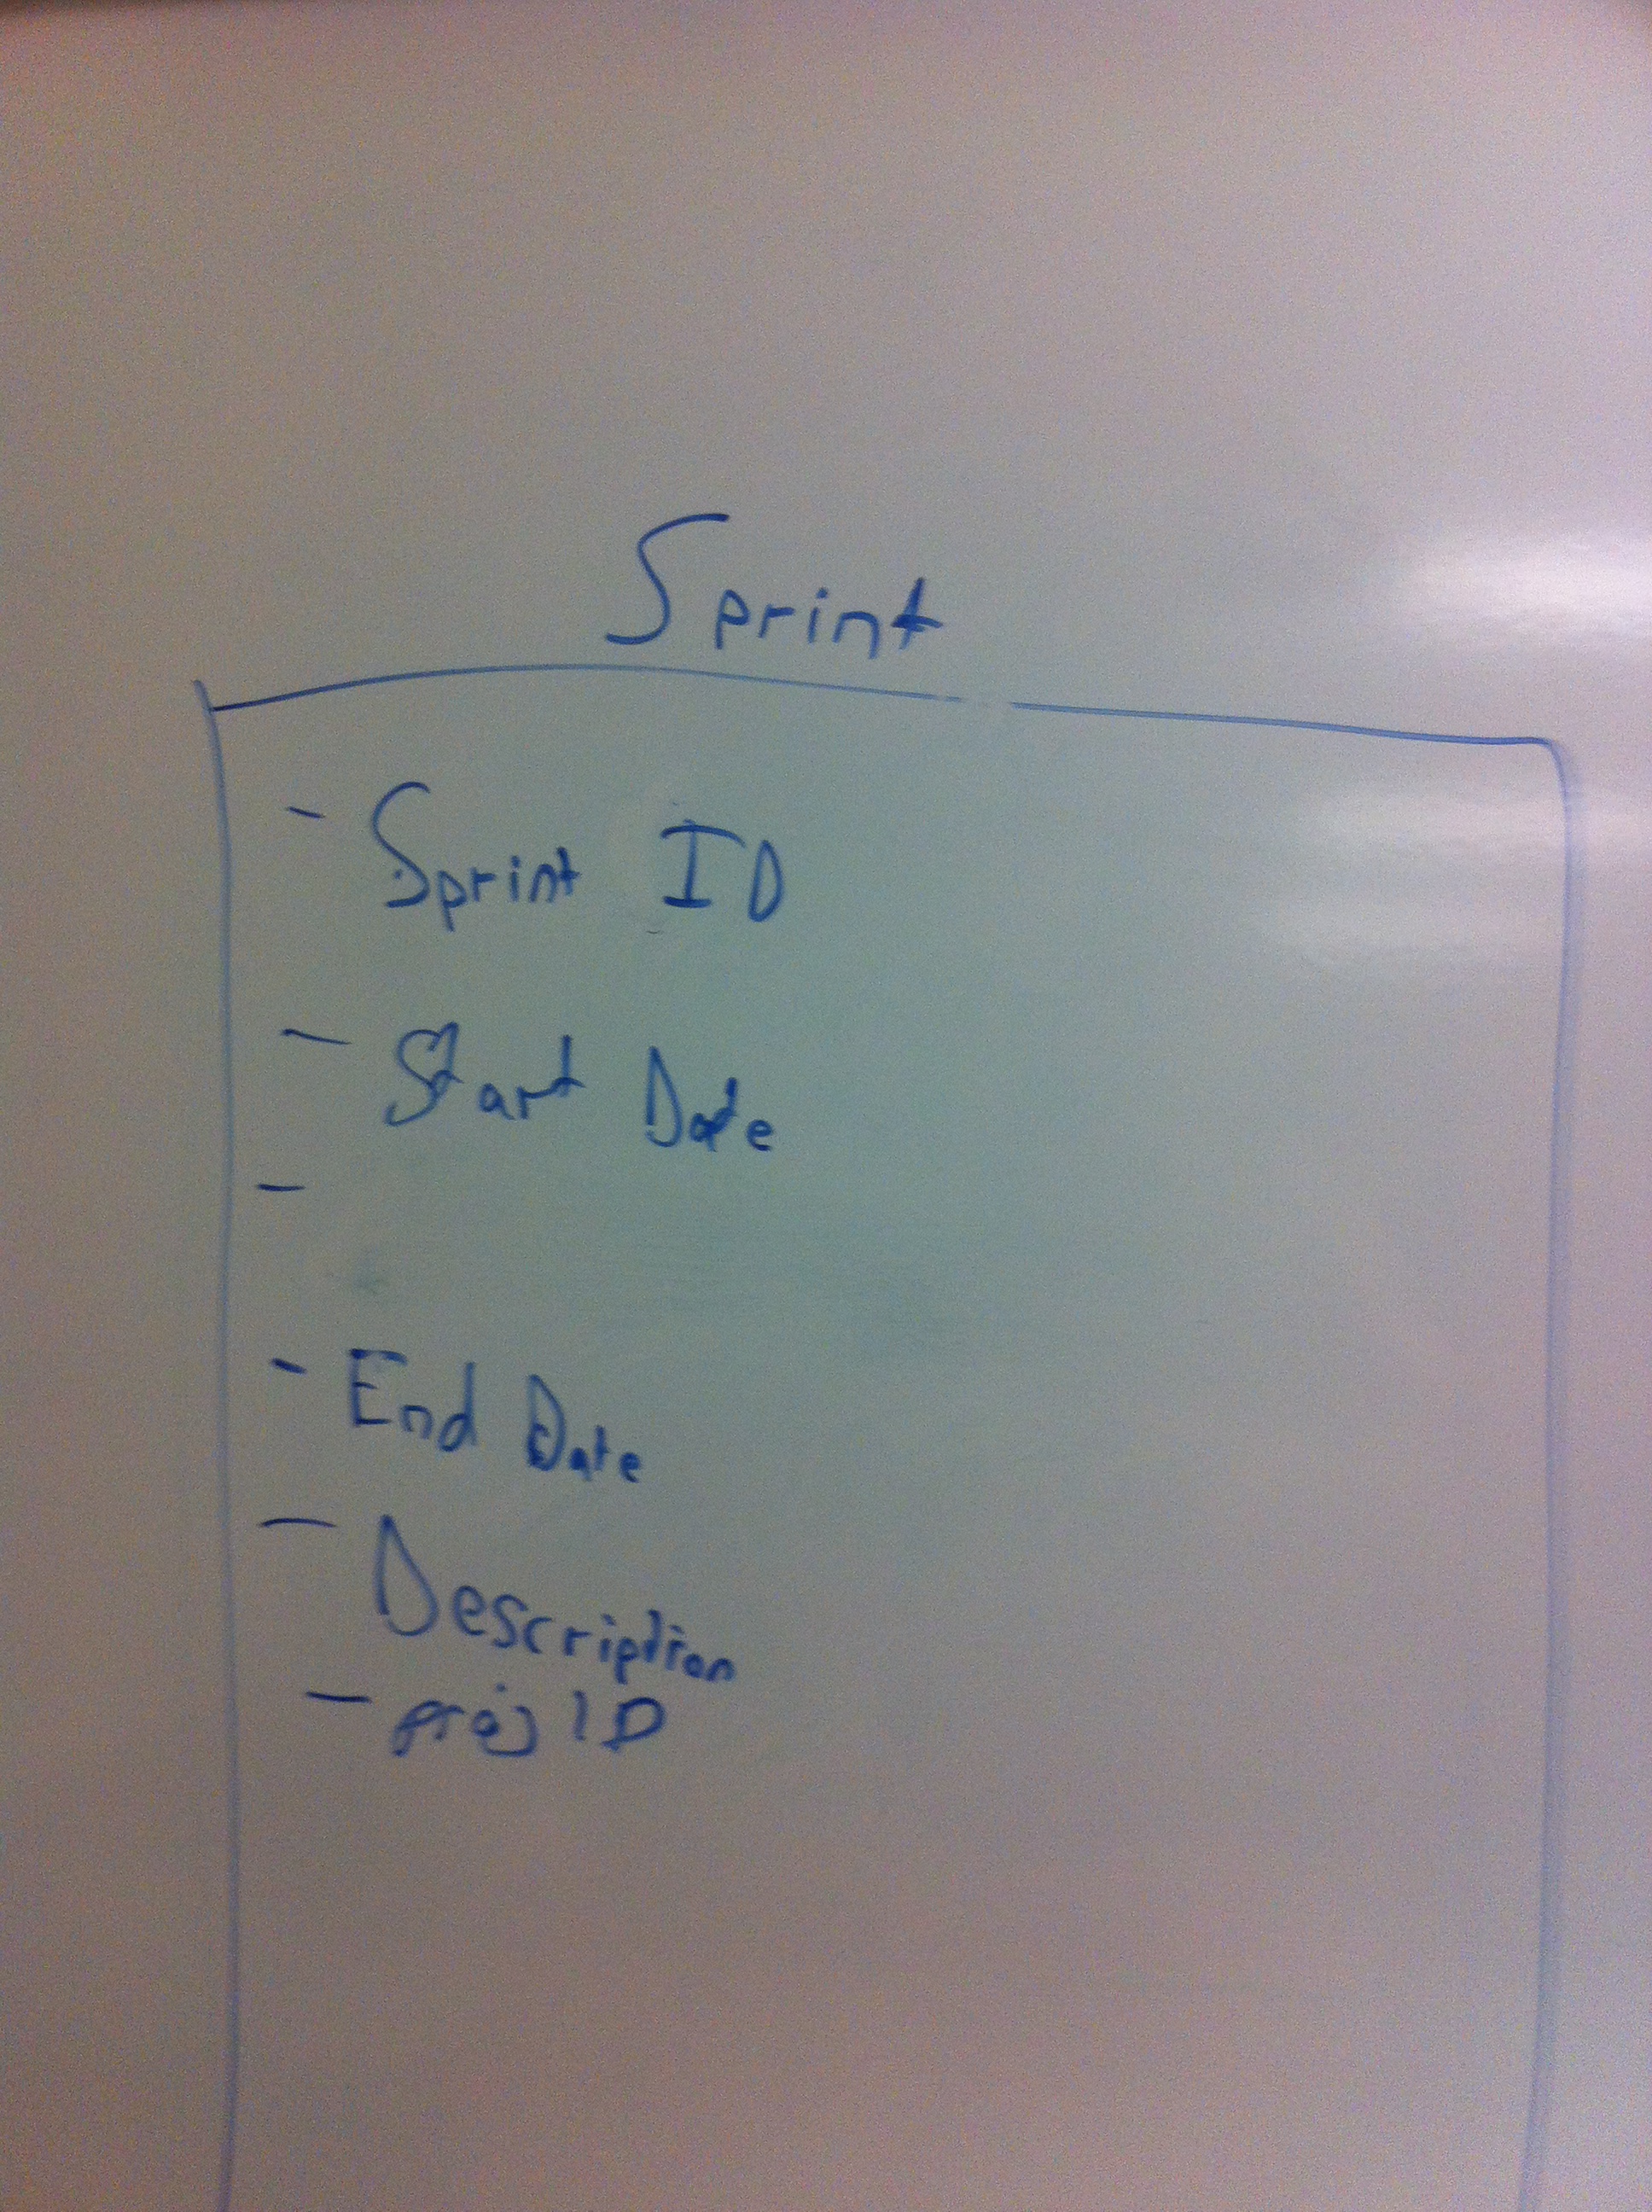 Sprint
- Sprint ID
- Start Date
-
- End Date
- Description
- proj ID